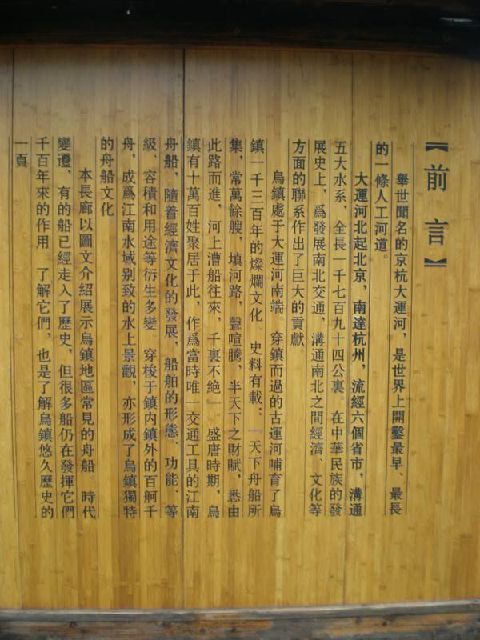 【前言】
舉世聞名的京杭大運河，是世界上開鑿最早、最長
的一條人工河道。
大運河北起北京，南達杭州，流經六個省市，溝通
五大水系、全長一千七百九十四公裏。在中華民族的發
展史上，爲發展南北交通，溝通南北之間經濟、文化等
方面的聯系作出了巨大的貢獻
烏鎮處于大運河南端，穿鎮而過的古運河哺育了烏
鎮一千三百年的燦爛文化。史料有載：「天下舟船所
集，常萬餘艘，填河路，聲喧騰，半天下之財賦，悉由
此路而進，河上漕船往來，千裏不絶」。盛唐時期，烏
鎮有十萬百姓聚居于此，作爲當時唯一交通工具的江南
舟船，隨着經濟文化的發展，船舶的形態、功能、等
級、容積和用途等衍生多變。穿梭于鎮内鎮外的百舸千
舟，成爲江南水域别致的水上景觀，亦形成了烏鎮獨特
的舟船文化
本長廊以圖文介紹展示烏鎮地區常見的舟船。時代
變遷，有的船已經走入了歷史，但很多船仍在發揮它們
千百年來的作用。了解它們，也是了解烏鎮悠久歷史的
一頁